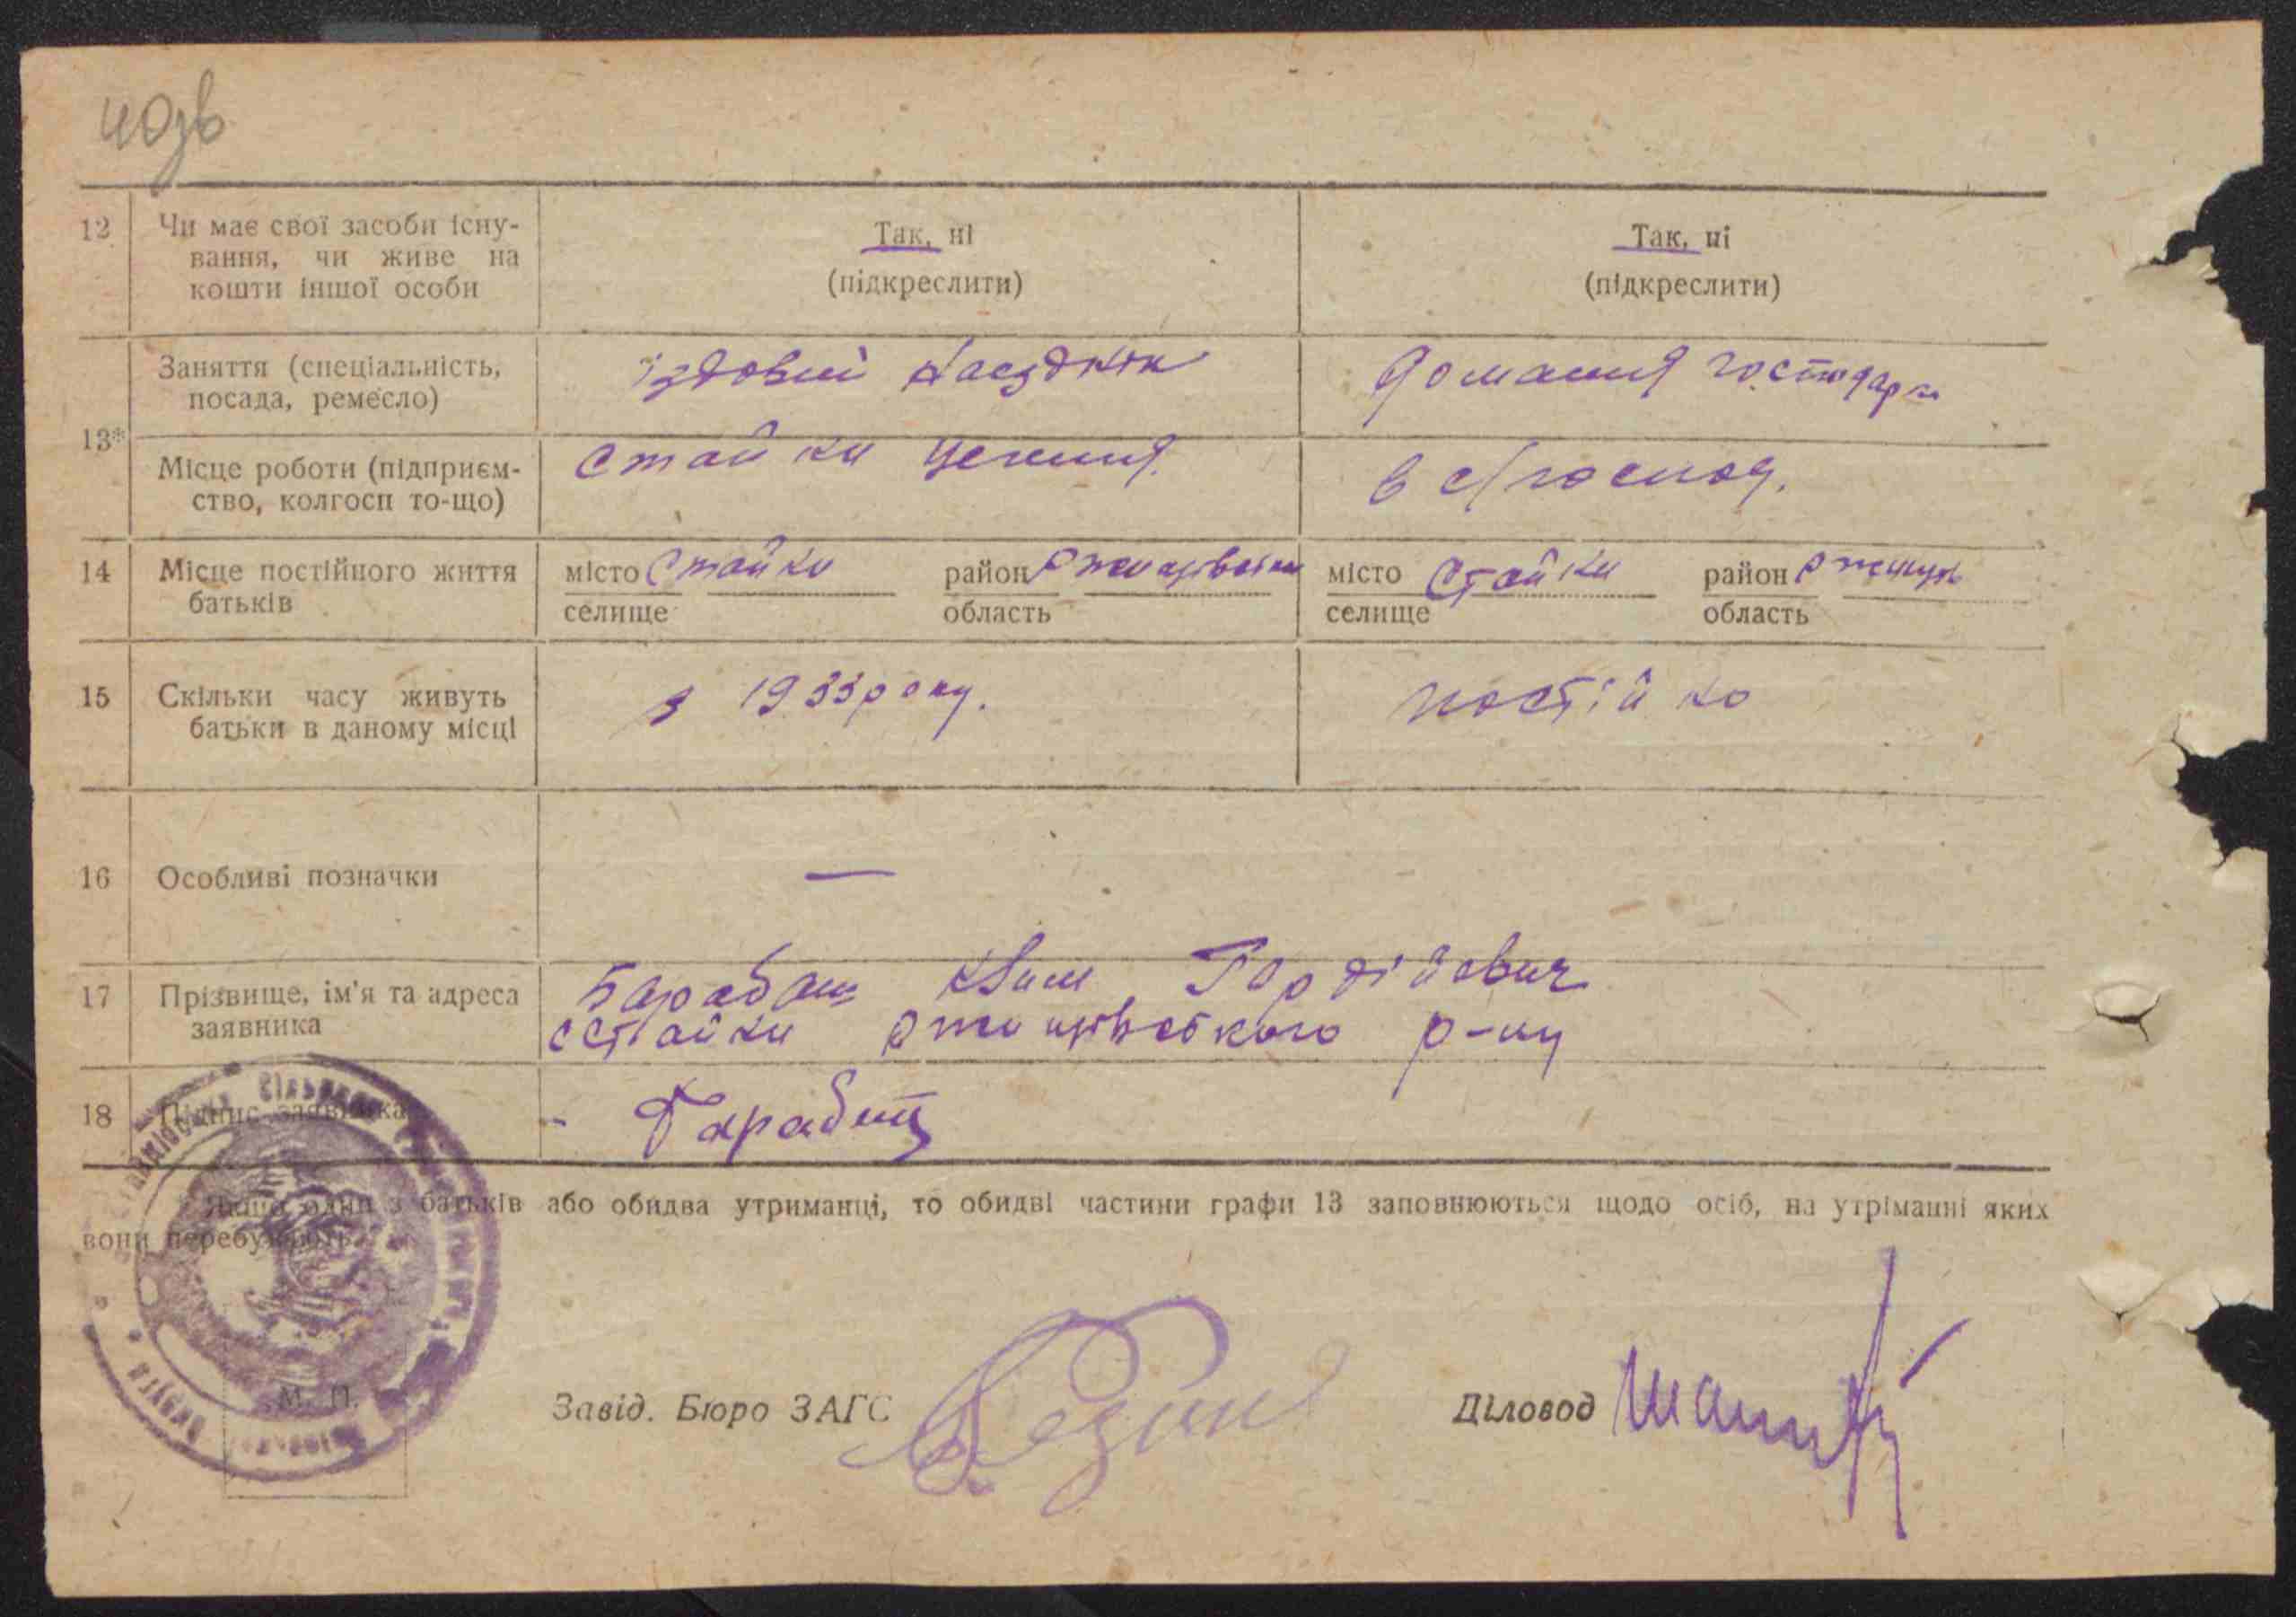 40зв
12 Чи має свої засоби існу- Так, ні Так, ні
вання, чи живе на (підкреслити) (підкреслити)
кошти іншої особи
13* Заняття (спеціальність, їздовий домашня господарк
посада, ремесло)
Місце роботи (підприєм- Стайки в с/господ.
ство, колгосп то-що)
14 Місце постійного життя місто Стайки район місто Стайки район
батьків селище область селище область
15 Скільки часу живуть з 1933 року. постійно
батьки в даному місці
16 Особливі позначки —
17 Прізвище, ім'я та адреса Барабаш Гордійович
заявника с Стайки Ржищівского р-ну
18 Підпис заявника - Барабаш
* Якщо один з батьків або обидва утриманці, то обидві частини графи 13 заповнюються щодо осіб, на утріманні яких
вони перебувають.
М. П.
Завід. Бюро ЗАГС Діловод